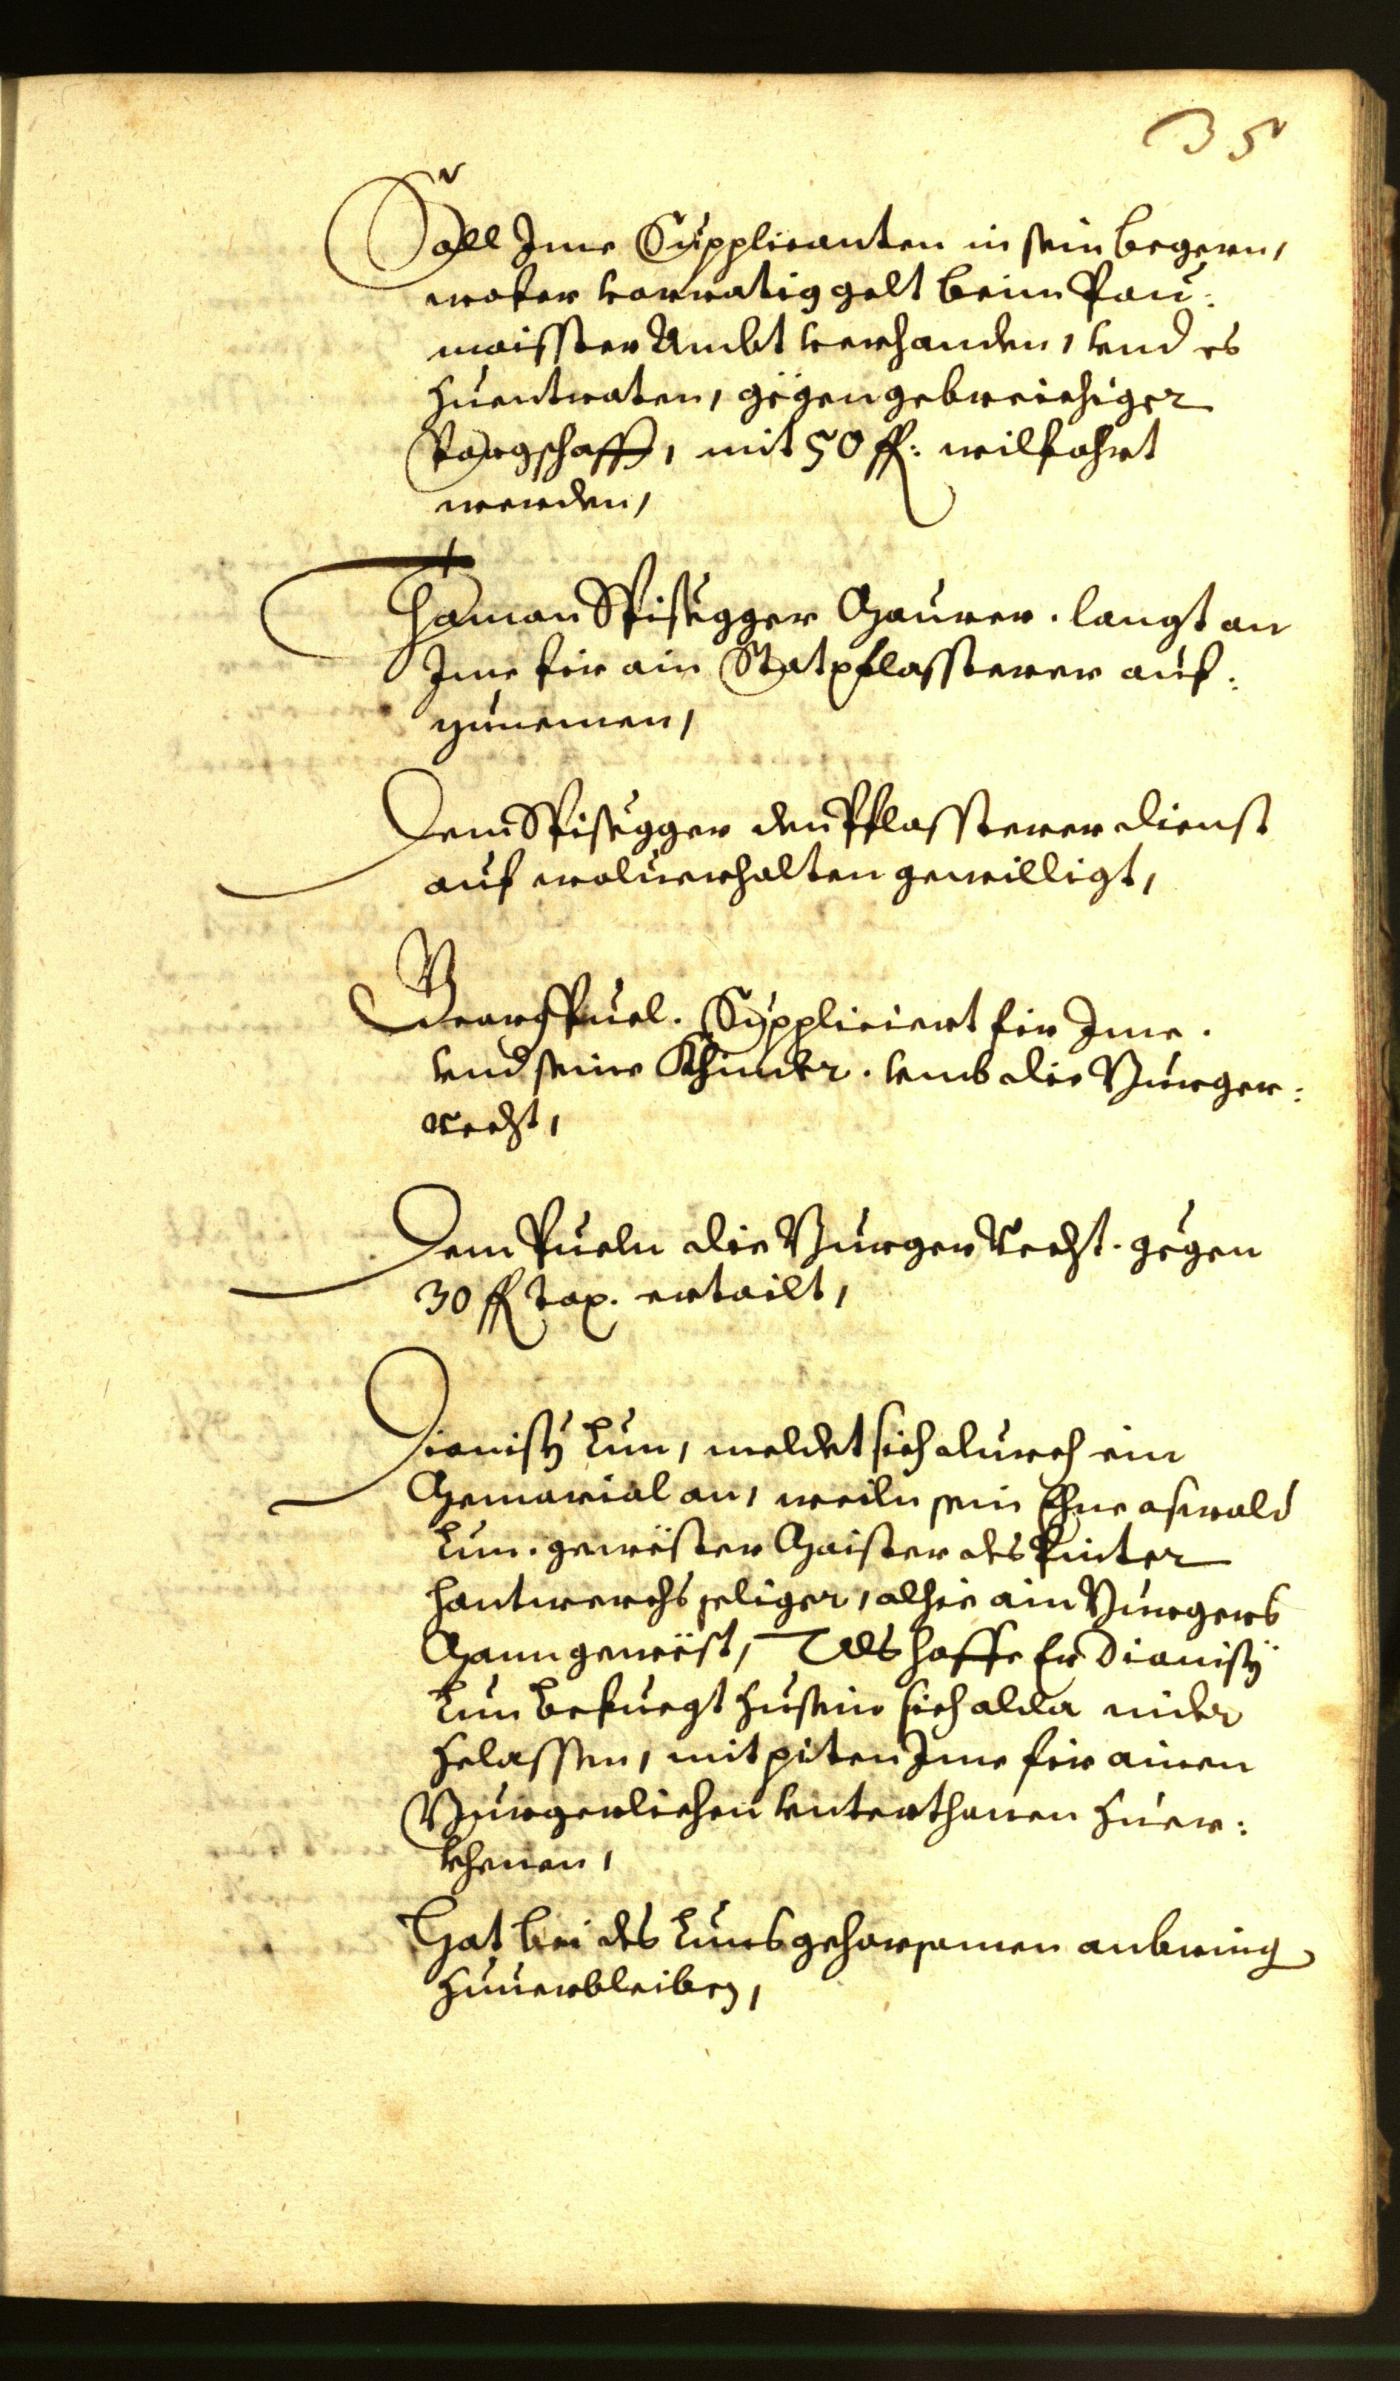 35
Soll Ime Supplicanten in sein begern,
wofer vorratig gelt beim Pau:
maisster Ambt verhanden, vnd es
zuentraten, gegen gebreichiger
Porgschafft, mit 50 fl: wilfahrt
werden,
Thaman Spisegger Maurer. langt an
Ime fir ain Statpflassterer auf:
zunemen,
Dem Spisegger den Pflassterer dienst
auf wolverhalten gewilligt,
Georg Puel. Suppliciert fir Ime.
vnd seine Khinder. vmb die Burger:
recht,
Dem Pueln die Burger Recht. gegen
30 fl tax. ertailt,
Dionisy Lun, meldet sich durch ein
Memorial an, weiln sein Ehne oswald
Lun. gewester Maister des Pinter
hantwerchs seliger, alhie ain Burgers
Mann gewest, Als hoffe Er Dionisÿ
Lun befuegt zusein sich alda nider
zelassen, mit piten Ime fir ainen
Burgerlichen vnterthonen zuer:
khenen,
Hat bei des Luns gehorsamen anbring
zuverbleiben,